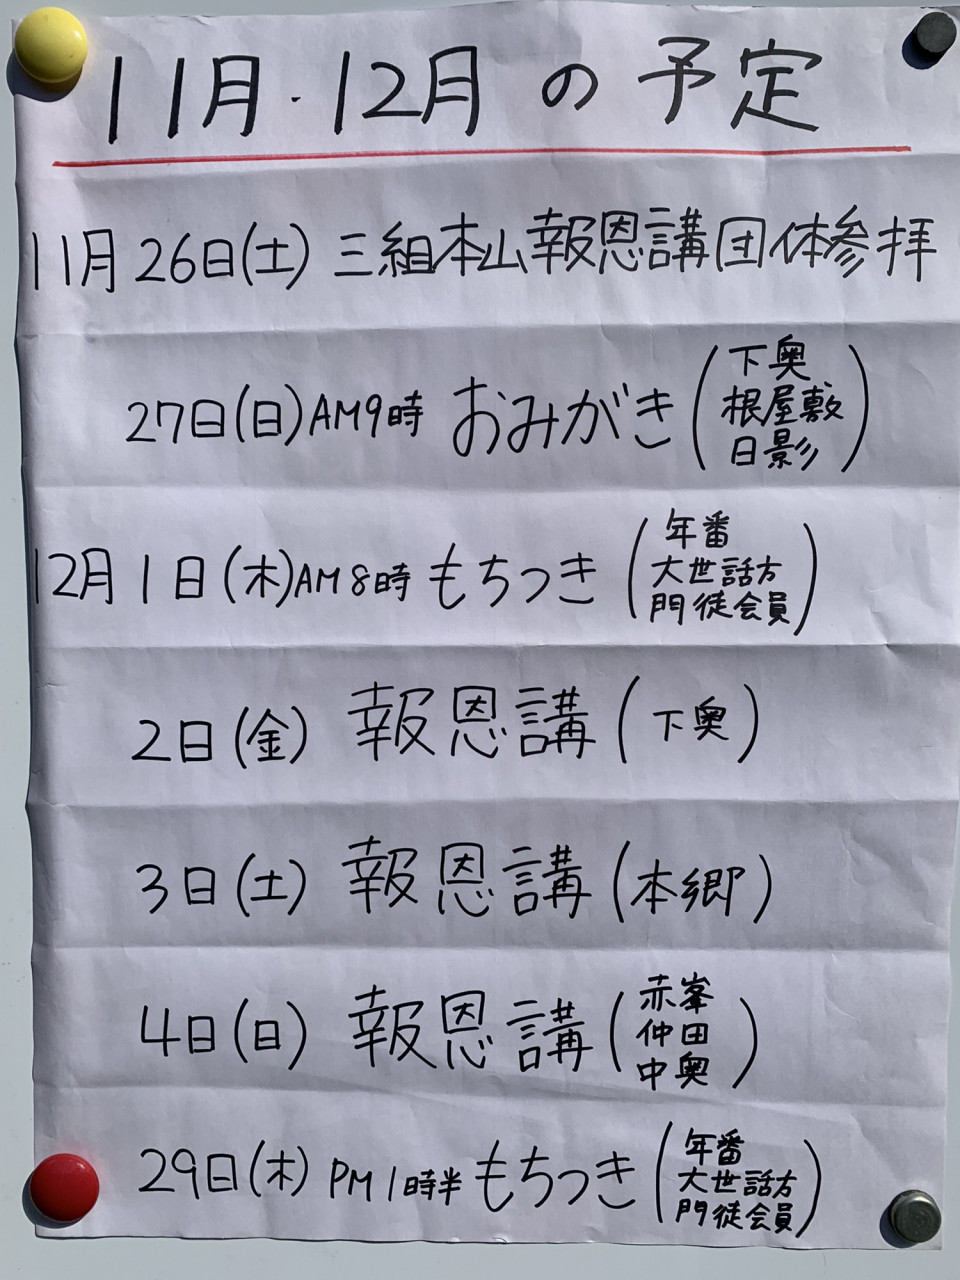 11月・12月の予定
11月26日(土) 三組本山報恩講団体参拝
27日(日)AM9時 おみがき(下奥
根屋敷
日影)
12月1日(木)AM8時 もちつき(年番
大世話方
門徒会員)
2日(金) 報恩講(下奥)
3日(土) 報恩講(本郷)
4日(日) 報恩講(赤峯
仲田
中奥)
29日(木) PM1時半 もちつき(年番
大世話方
門徒会員)